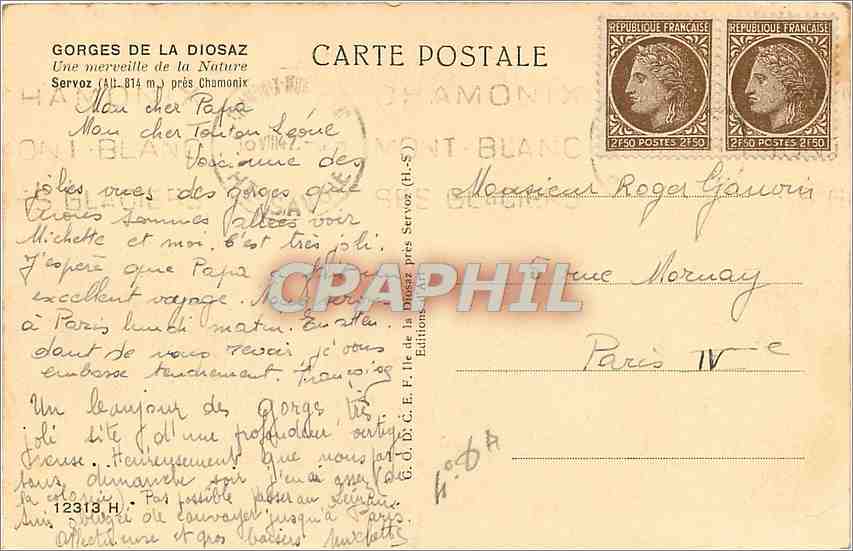 GORGES DE LA DIOSAZ
Une merveille de la Nature
Servoz (Alt. 814 m.) près Chamonix
CARTE POSTALE
RÉPUBLIQUE FRANÇAISE
2F50 POSTES 2F50
RÉPUBLIQUE FRANÇAISE
2F50 POSTES 2F50
CHAMONIX
MONT-BLANC
Mon cher Papa
Mon cher Tonton
Voici une des
jolies vues des gorges que
nous sommes allées voir
Michette et moi. C'est très joli.
J'espère que Papa a fait un
excellent voyage. Nous
à Paris lundi matin. En atten
dant de vous revoir je vous
embrasse tendrement. Françoise
Un bonjour des Gorges très
joli site d'une profondeur vertigi
neuse. Heureusement que nous par
tons dimanche soir j'en ai assez de
la colonie). Pas possible
suis obligée de convoyer jusqu'à Paris.
et gros baisers
12313 H
G. O. D. C. E. F. Ile de la Diosaz près Servoz (H.-S)
Editions d'Art
Monsieur Roger
5 rue Mornay
Paris IVe
CPAPHIL